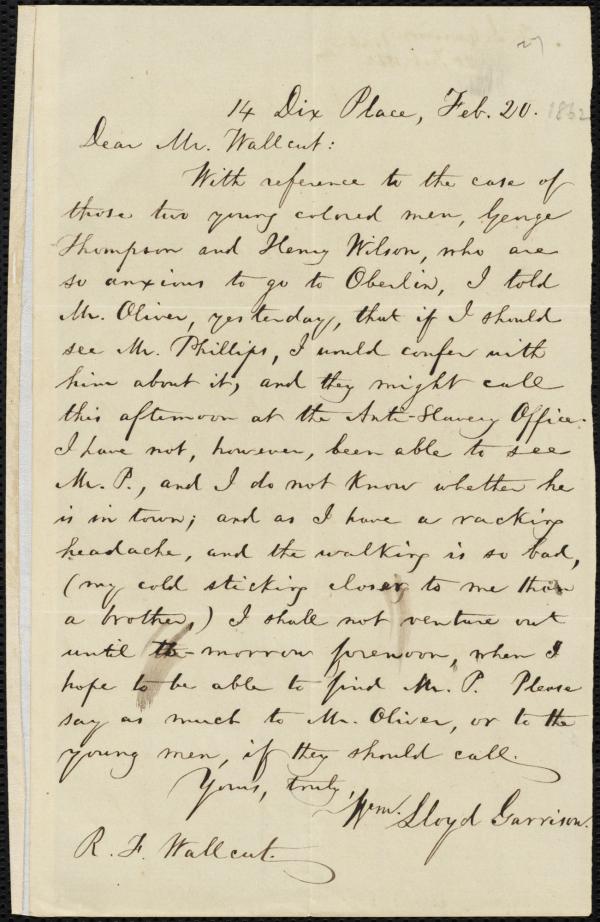 27
14 Dix Place, Feb. 20. 1862
Dear Mr. Wallcut:
With reference to the case of
those two young colored men, George
Thompson and Henry Wilson, who are
so anxious to go to Oberlin, I told
Mr. Oliver, yesterday, that if I should
see Mr. Phillips, I would confer with
him about it, and they might call
this afternoon at the Anti-Slavery Office.
I have not, however, been able to see
Mr. P., and I do not know whether he
is in town; and as I have a racking
headache, and the walking is so bad,
(my cold sticking closer to me than
a brother,) I shall not venture out
until to-morrow forenoon, when I
hope to be able to find Mr. P. Please
say as much to Mr. Oliver, or to the
young men, if they should call.
Yours, truly,
Wm. Lloyd Garrison.
R. F. Wallcut.